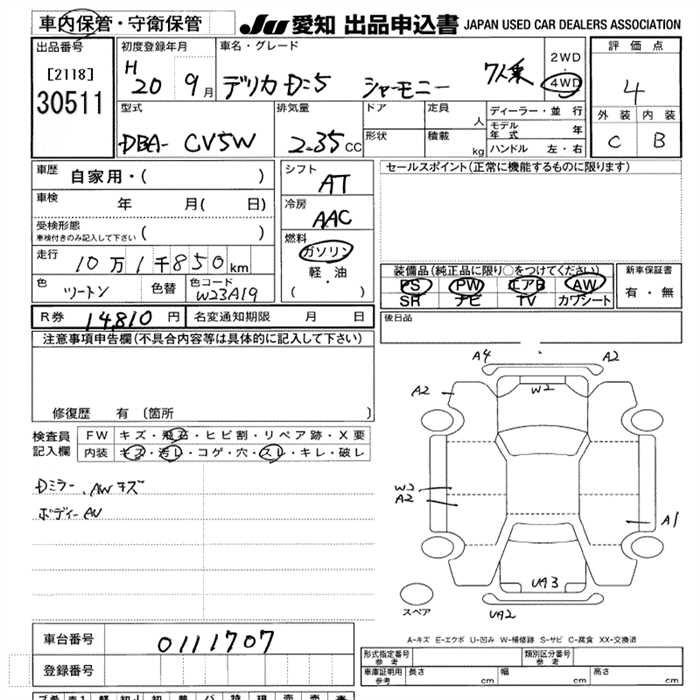 車内保管・守衛保管
JU 愛知 出品申込書 JAPAN USED CAR DEALERS ASSOCIATION
出品番号
[2118]
30511
初度登録年月
H 20 9月
車名・グレード
デリカD:5 シャーモニー 7人乗
2WD
・
4WD
評価点
4
外装 内装
C B
型式
DBA- CV5W
排気量
2.35 CC
ドア
形状
定員 人
積載 kg
ディーラー・並行
モデル年式 年
ハンドル 左・右
車歴 自家用・( )
車検 年 月( 日)
受検形態
車検付きのみ記入して下さい ( )
走行 10万1千850km
色 ツートン 色替 色コード W23A19
シフト
AT
冷房
AAC
燃料
ガソリン
軽・油
( )
セールスポイント(正常に機能するものに限ります)
装備品(純正品に限り○をつけてください)
PS PW エアB AW
SR ナビ TV カワシート
新車保証書
有・無
R券 14,810円 名変通知期限 月 日
後日品
注意事項申告欄(不具合内容等は具体的に記入して下さい)
修復歴 有 (箇所 )
検査員
記入欄
FW キズ・飛石・ヒビ割・リペア跡・X要
内装 キズ・汚レ・コゲ・穴・スレ・キレ・破レ
Dミラー、AWキズ
ボディーAU
A4 A2
A2 W2
W3
A2
A1
UA3
UA2
スペア
A-キズ E-エクボ U-凹み W-補修跡 S-サビ C-腐食 XX-交換済
車台番号 0111707
登録番号
形式指定番号
参考
類別区分番号
参考
車庫証明用
参考
長さ cm 幅 cm 高さ cm